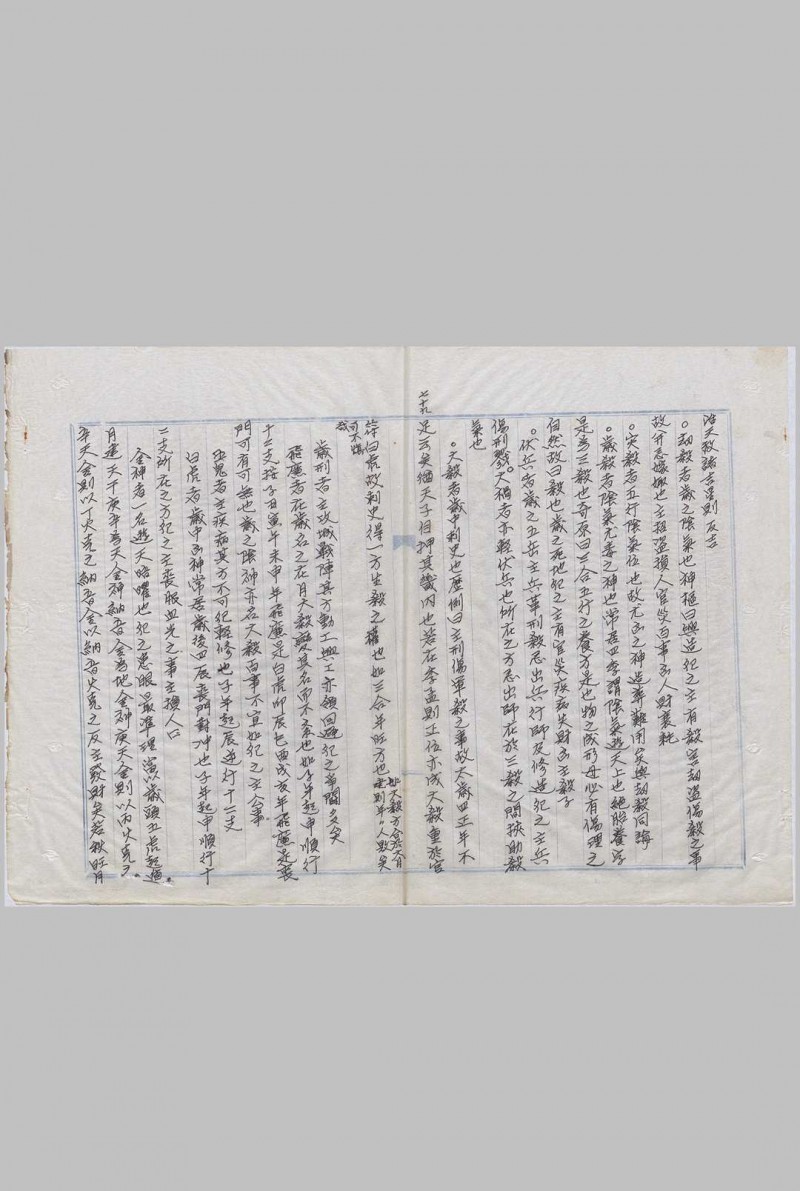 治天殺諸吉星則反吉
○劫殺者歲之陰氣也神樞曰興造犯之主有殺害劫盜傷殺之事
故分忌嫁娶也主招盜損人官災百事凶人財衰耗
○災殺者五行陰氣位也故尤凶之神造葬難用矣與劫殺同論
○歲殺者陰氣尤毒之神也常居四季謂陰氣遊天上也絕胎養宮
是為三殺也奇禾曰三合五行之養方是也物之成形母必有傷理之
自然故曰殺也歲之死地犯之主有官災疾病失財凶主殺子
○伏兵者歲之五兵主兵革刑殺忌出兵行師及修造犯之主兵
傷刑戮○大禍者亦輕伏兵也所在之方忌出師在於三殺之間挾助殺
氣也
○大殺者歲中刺史也歷例曰主刑傷軍殺之事故太歲四正年不
七十九
足云矣猶天子自押其畿內也若在季孟則正位亦成大殺重於官
符白虎故刺史得一方生殺之權也如三合年旺方也 如大殺方合於六月建則年○人數矣
可不慎哉
歲刑者主攻城戰陣其方動工興工亦須回避犯之爭鬪多矣
飛廉者在歲名之在月大殺變其名而不忝也如子年起申順行
十二支按子丑寅年未申年飛廉是白虎卯辰巳酉戌亥年飛廉是喪
門可有可無也歲之陰神亦名大殺百事不宜如犯之主公事
五鬼者主疾病其方不可犯輕修也子年起辰逆行十二支
白虎者歲中凶神常居歲後四辰喪門對冲也子年起申順行十
二支所在之方犯之主喪服血光之事主損人口
金神者一名遊天暗曜也犯之患眼最準理演以歲頭五虎起遁○
月建天干庚辛為天金神納音金為地金神庚天金則以丙火克之○
辛天金則以丁火克之納音金以納音火克之反主發財矣若秋旺月